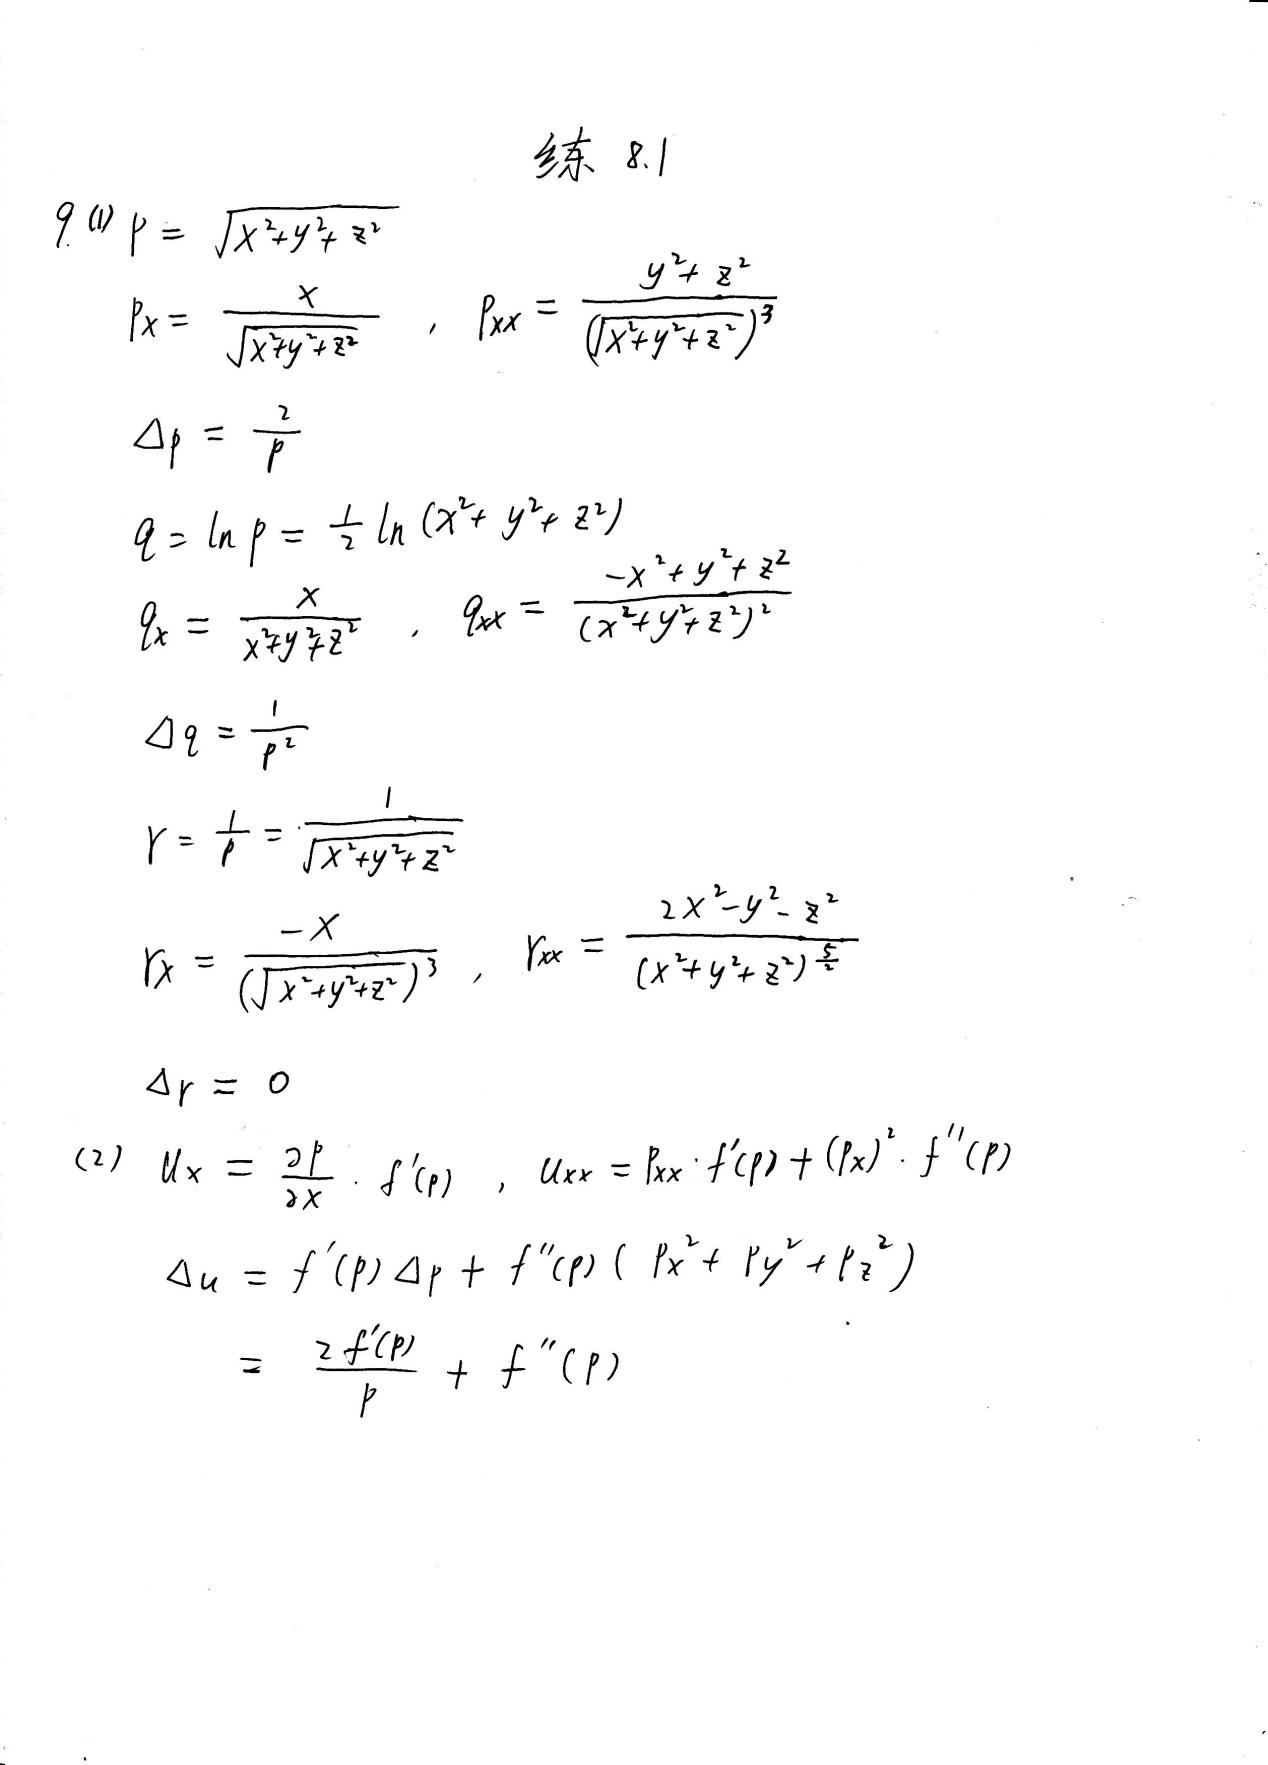 练 8.1
9.(1) p = √(x²+y²+z²)
p_x = x/√(x²+y²+z²) , p_xx = (y²+z²)/(√(x²+y²+z²))³
△p = 2/p
q = ln p = 1/2 ln (x²+y²+z²)
q_x = x/(x²+y²+z²) , q_xx = (-x²+y²+z²)/(x²+y²+z²)²
△q = 1/p²
r = 1/p = 1/√(x²+y²+z²)
r_x = -x/(√(x²+y²+z²))³ , r_xx = (2x²-y²-z²)/(x²+y²+z²)^(5/2)
△r = 0
(2) u_x = ∂p/∂x · f'(p) , u_xx = p_xx · f'(p) + (p_x)² · f''(p)
△u = f'(p) △p + f''(p) ( p_x² + p_y² + p_z² )
= 2f'(p)/p + f''(p)